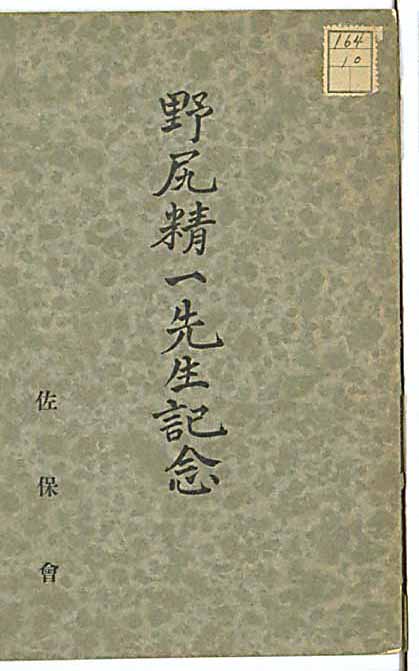 164
10
野尻精一先生記念
佐保會